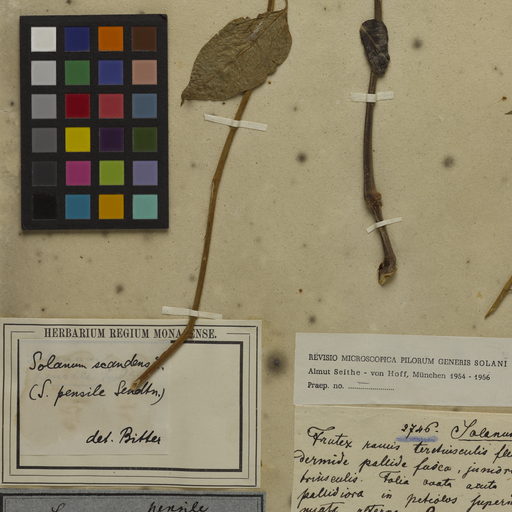 HERBARIUM REGIUM MONACENSE.
Solanum scandens
(S. pensile Sendtn.)
det. Bitter
pensile
REVISIO MICROSCOPICA PILORUM GENERIS SOLANI
Almut Seithe - von Hoff, München 1954 - 1956
Praep. no.
3746. Solanum
Frutex ramis teretiusculis
dermide pallide fusca, junioribus
Folia ovata acuta
pallidiora in petiolos